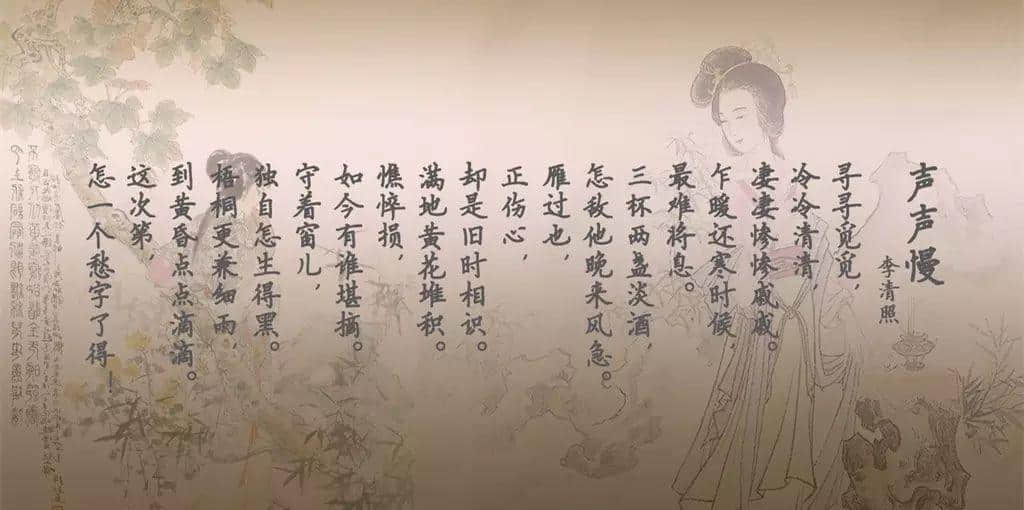 声声慢
李清照
寻寻觅觅，
冷冷清清，
凄凄惨惨戚戚。
乍暖还寒时候，
最难将息。
三杯两盏淡酒，
怎敌他晚来风急。
雁过也，
正伤心，
却是旧时相识。
满地黄花堆积。
憔悴损，
如今有谁堪摘。
守着窗儿，
独自怎生得黑。
梧桐更兼细雨，
到黄昏点点滴滴。
这次第，
怎一个愁字了得！